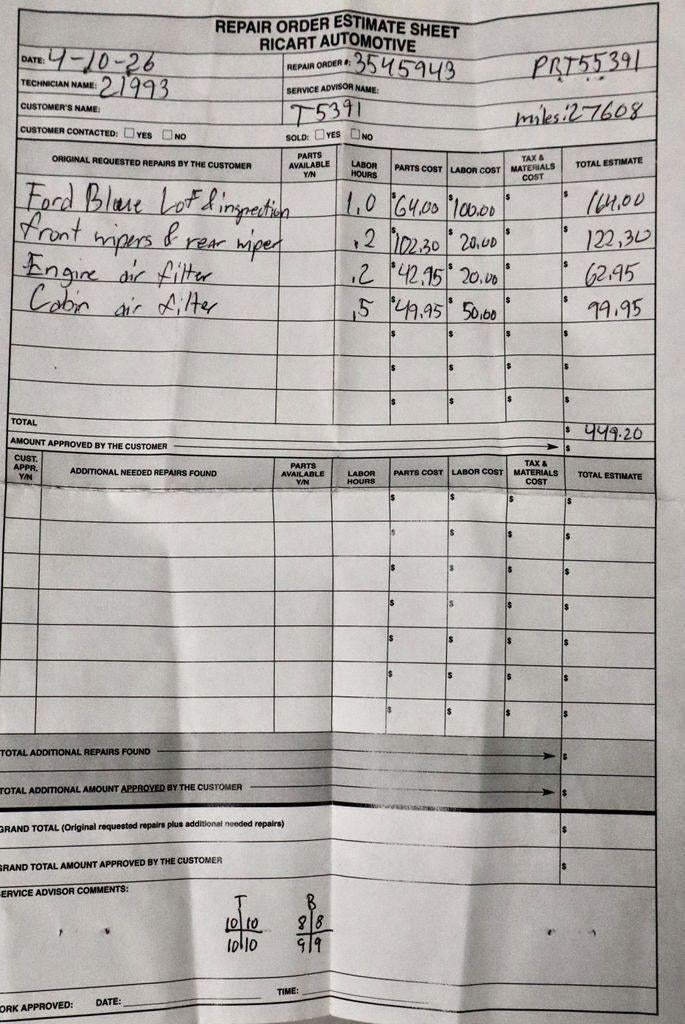 REPAIR ORDER ESTIMATE SHEET
RICART AUTOMOTIVE
DATE: 4-10-26 REPAIR ORDER #: 3545943 PRT55391
TECHNICIAN NAME: 21993 SERVICE ADVISOR NAME:
CUSTOMER'S NAME: T5391 miles: 27608
CUSTOMER CONTACTED: ☐ YES ☐ NO SOLD: ☐ YES ☐ NO
ORIGINAL REQUESTED REPAIRS BY THE CUSTOMER PARTS AVAILABLE Y/N LABOR HOURS PARTS COST LABOR COST TAX & MATERIALS COST TOTAL ESTIMATE
Ford Blue Lof & inspection 1.0 $64.00 $100.00 $ $ 164.00
front wipers & rear wiper .2 $102.30 $20.00 $ $ 122.30
Engine air filter .2 $42.95 $20.00 $ $ 62.95
Cabin air filter .5 $49.95 $50.00 $ $ 99.95
$ $ $ $
$ $ $ $
$ $ $ $
TOTAL $ 449.20
AMOUNT APPROVED BY THE CUSTOMER $
CUST. APPR. Y/N ADDITIONAL NEEDED REPAIRS FOUND PARTS AVAILABLE Y/N LABOR HOURS PARTS COST LABOR COST TAX & MATERIALS COST TOTAL ESTIMATE
$ $ $ $
$ $ $ $
$ $ $ $
$ $ $ $
$ $ $ $
$ $ $ $
$ $ $ $
TOTAL ADDITIONAL REPAIRS FOUND $
TOTAL ADDITIONAL AMOUNT APPROVED BY THE CUSTOMER $
GRAND TOTAL (Original requested repairs plus additional needed repairs) $
GRAND TOTAL AMOUNT APPROVED BY THE CUSTOMER $
SERVICE ADVISOR COMMENTS:
T B
10 10 8 8
10 10 9 9
ORK APPROVED: DATE: TIME: